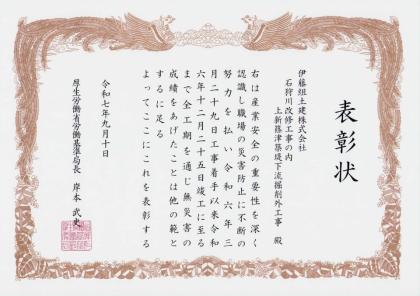 表彰状
伊藤組土建株式会社
石狩川改修工事の内
上新篠津築堤下流掘削外工事 殿
右は産業安全の重要性を深く
認識し職場の災害防止に不断の
努力を払い令和六年三
月二十九日工事着手以来令和
六年十二月二十五日竣工に至る
まで全工期を通じ無災害の
成績をあげたことは他の範と
するに足る
よってここにこれを表彰する
令和七年九月十日
厚生労働省労働基準局長 岸本 武史